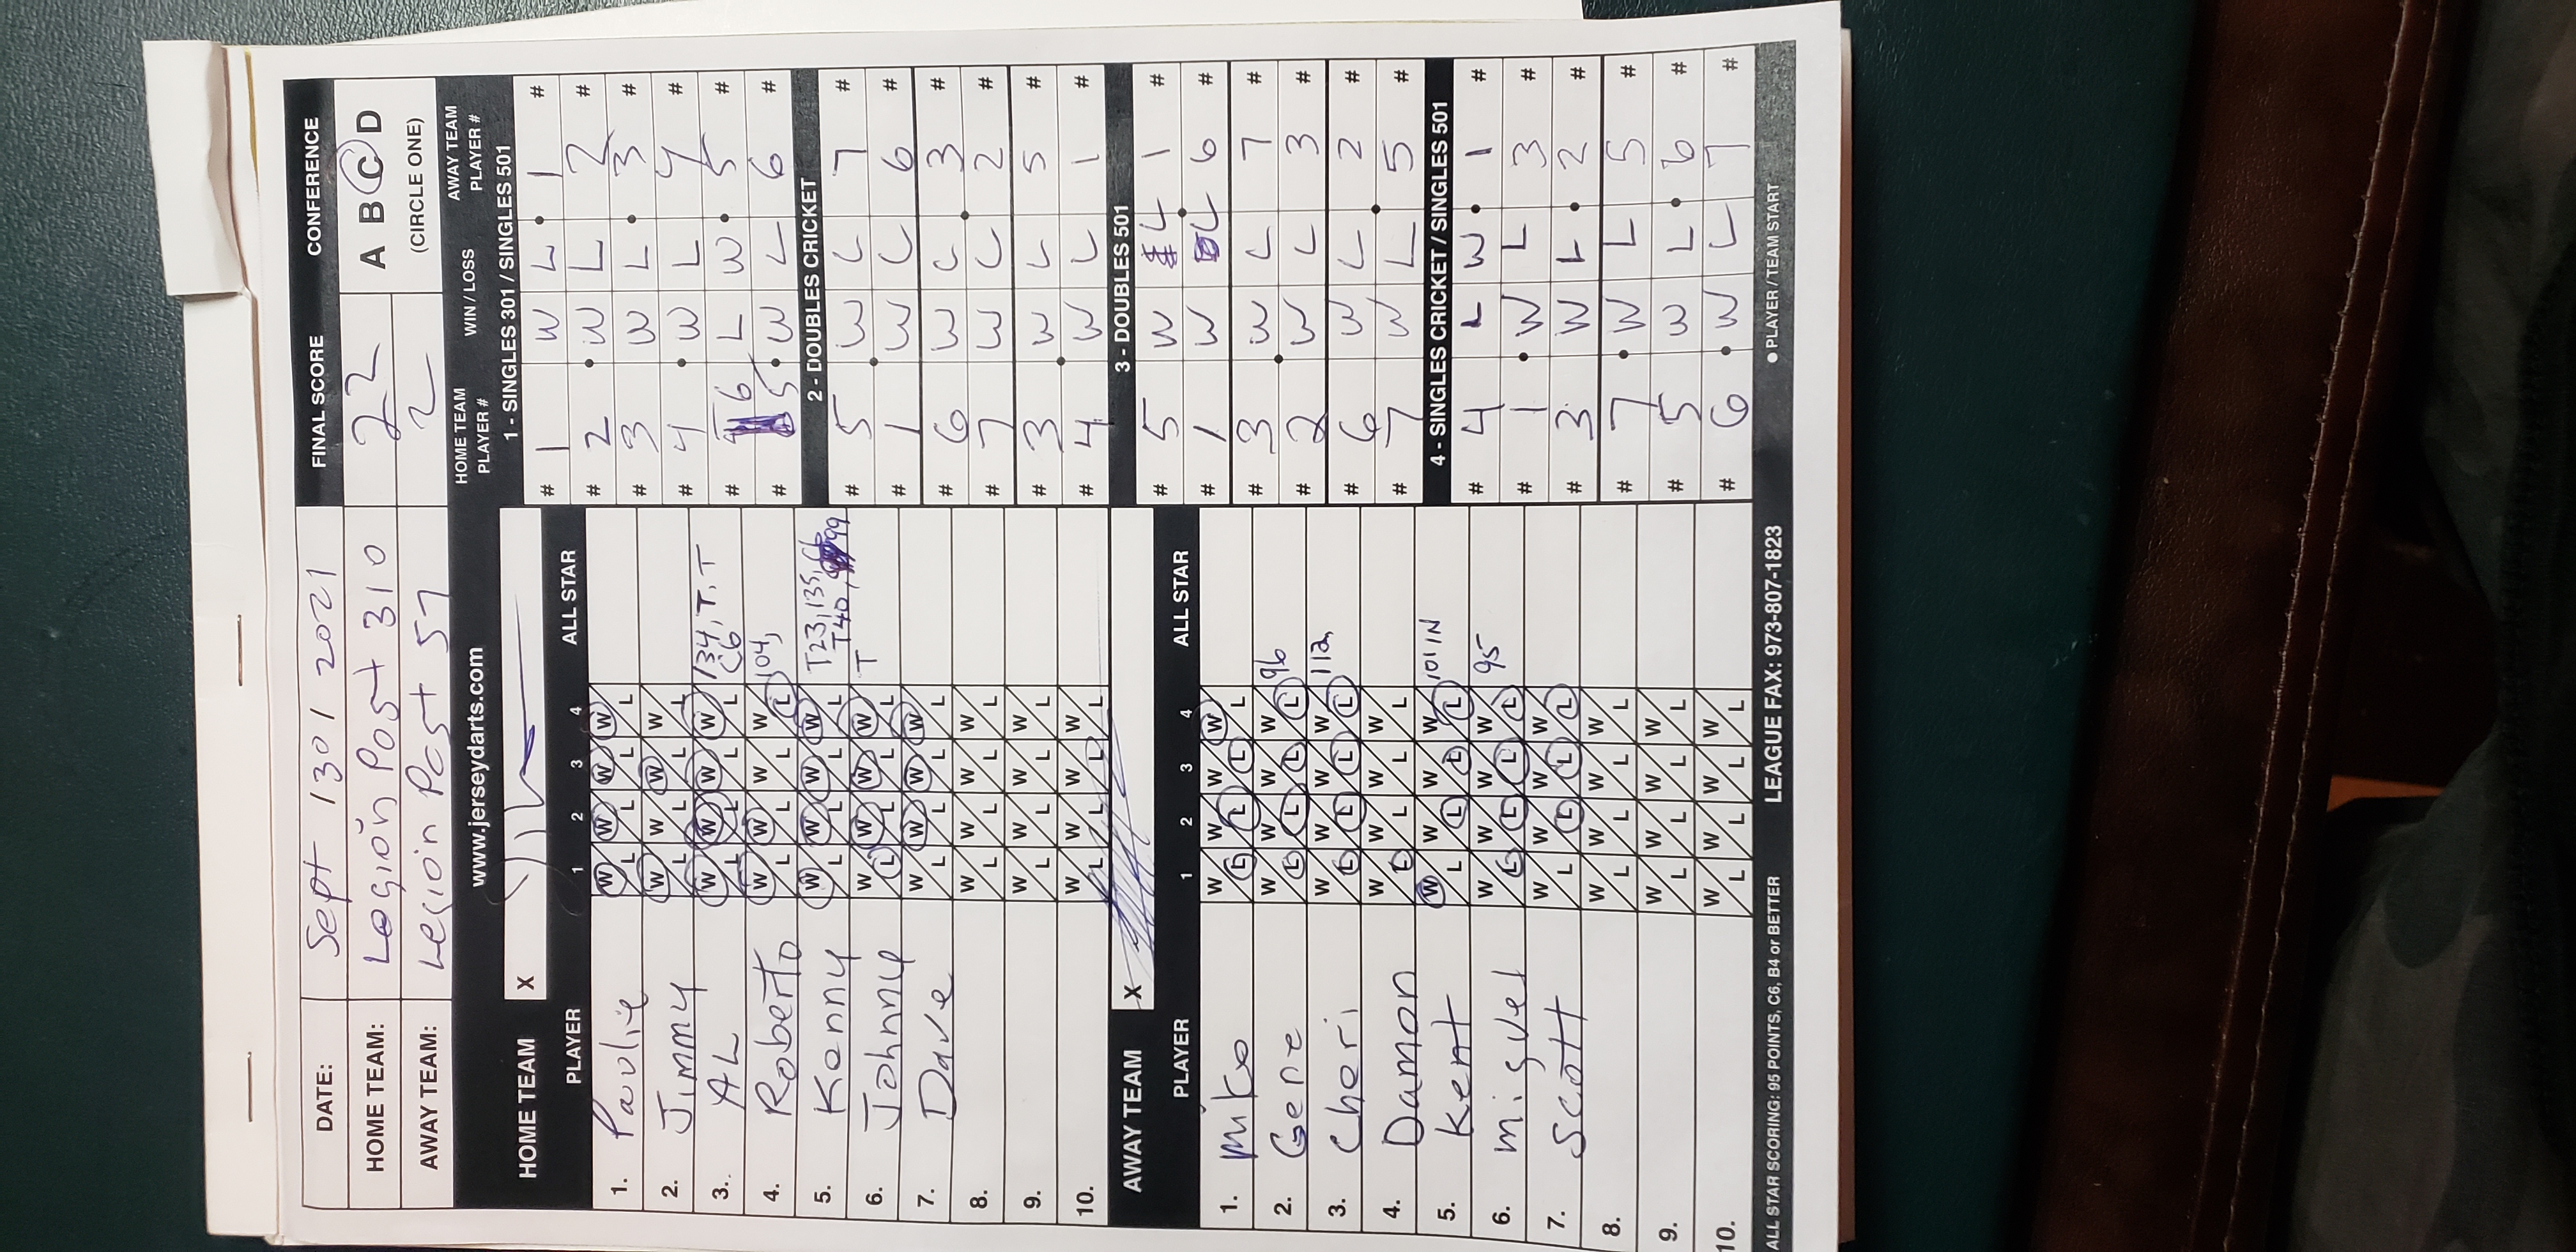 DATE: Sept 130 1 2021 FINAL SCORE CONFERENCE
HOME TEAM: Legion Post 310 22 A B C D
AWAY TEAM: Legion Post 57 2 (CIRCLE ONE)
www.jerseydarts.com
HOME TEAM PLAYER # WIN / LOSS AWAY TEAM PLAYER #
HOME TEAM X
PLAYER 1 2 3 4 ALL STAR
1. Paulie W L W L W L W L
2. Jimmy W L W L W L W L
3. AL W L W L W L W L 134, T, T
C6
4. Roberto W L W L W L W L 104,
5. Kenny W L W L W L W L T23, 135, C6
T40, 99
6. Johnny W L W L W L W L T
7. Dave W L W L W L W L
8. W L W L W L W L
9. W L W L W L W L
10. W L W L W L W L
AWAY TEAM X
PLAYER 1 2 3 4 ALL STAR
1. Mike W L W L W L W L
2. Gene W L W L W L W L 96
3. Cheri W L W L W L W L 112
4. Damon W L W L W L W L
5. Kent W L W L W L W L 101 IN
6. Miguel W L W L W L W L 95
7. Scott W L W L W L W L
8. W L W L W L W L
9. W L W L W L W L
10. W L W L W L W L
1 - SINGLES 301 / SINGLES 501
# 1 W L 1 #
# 2 W L 2 #
# 3 W L 3 #
# 4 W L 4 #
# 6 L W 5 #
# 5 W L 6 #
2 - DOUBLES CRICKET
# 5 W L 7 #
# 1 W L 6 #
# 6 W L 3 #
# 7 W L 2 #
# 3 W L 5 #
# 4 W L 1 #
3 - DOUBLES 501
# 5 W L 1 #
# 1 W L 6 #
# 3 W L 7 #
# 2 W L 3 #
# 6 W L 2 #
# 7 W L 5 #
4 - SINGLES CRICKET / SINGLES 501
# 4 L W 1 #
# 1 W L 3 #
# 3 W L 2 #
# 7 W L 5 #
# 5 W L 6 #
# 6 W L 7 #
ALL STAR SCORING: 95 POINTS, C6, B4 or BETTER LEAGUE FAX: 973-807-1823 ● PLAYER / TEAM START